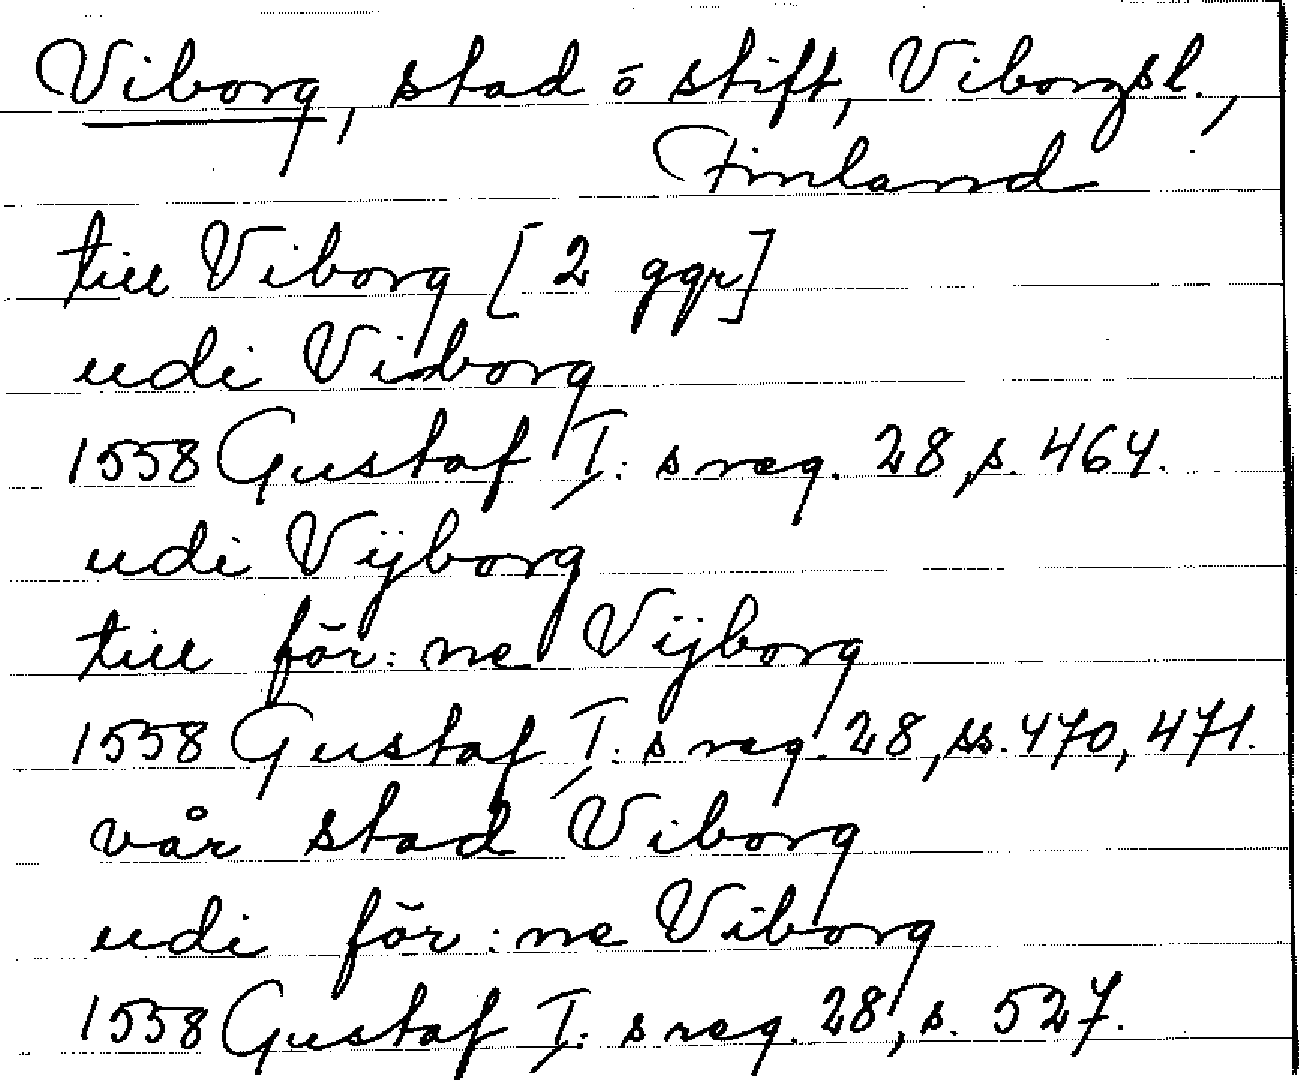 Viborg, stad o stift, Viborgsl.,
Finland
till Viborg [2 ggr]
udi Viborg
1558 Gustaf I:s reg. 28, s. 464.
udi Vijborg
till för:ne Vijborg
1558 Gustaf I:s reg. 28, ss. 470, 471.
vår stad Viborg
udi för:ne Viborg
1558 Gustaf I:s reg. 28, s. 527.